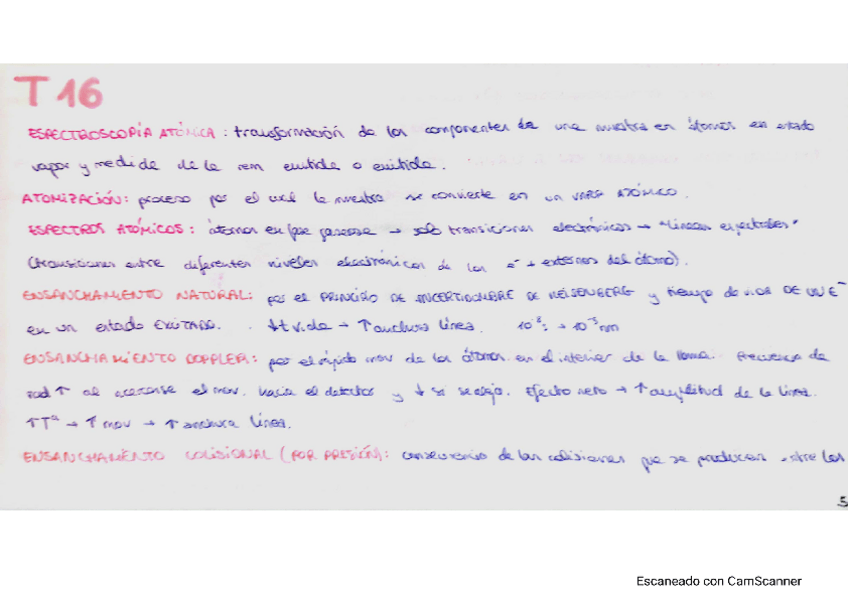 T 16
ESPECTROSCOPÍA ATÓMICA: transformación de los componentes de una muestra en átomos en estado
vapor y medida de la rem emitida o emitida.
ATOMIZACIÓN: proceso por el cual la muestra se convierte en un VAPOR ATÓMICO.
ESPECTROS ATÓMICOS: átomos en fase gaseosa → solo transiciones electrónicas → "líneas espectrales"
(transiciones entre diferentes niveles electrónicos de los e⁻ + externos del átomo).
ENSANCHAMIENTO NATURAL: por el PRINCIPIO DE INCERTIDUMBRE DE HEISENBERG y tiempo de vida DE UN E⁻
en un estado EXCITADO. ↓t vida → ↑anchura línea. 10⁻⁵ → 10⁻³nm
ENSANCHAMIENTO DOPPLER: por el rápido mov de los átomos en el interior de la llama. Frecuencia de
rad ↑ al acercarse el mov. hacia el detector y ↓ si se aleja. Efecto neto → ↑amplitud de la línea.
↑Tª → ↑ mov → ↑ anchura línea.
ENSANCHAMIENTO COLISIONAL (POR PRESIÓN): consecuencia de las colisiones que se producen entre los
5
Escaneado con CamScanner